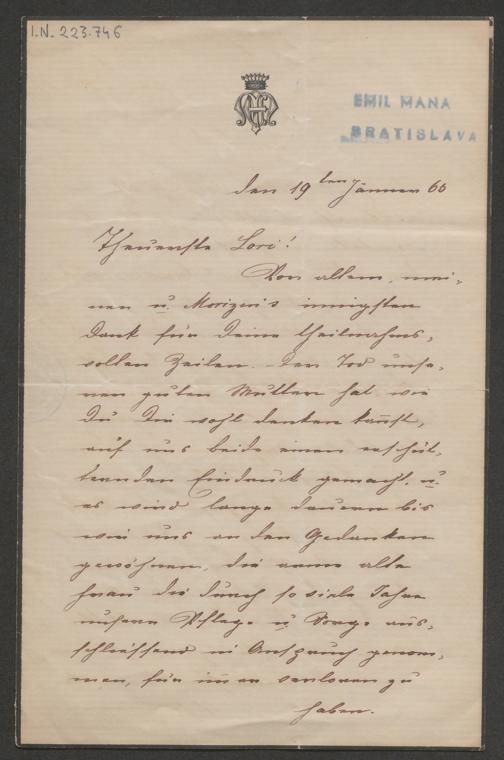 I.N. 223.746
EMIL MANA
BRATISLAVA
den 19ten Jänner 66
Theuerste Lori!
Vor allem, mei-
nen u. Morizens innigsten
Dank für Deine theilnahms-
vollen Zeilen. Der Tod unse-
rer guten Mutter hat wie
Du Dir wohl denken kannst,
auf uns beide einen erschüt-
ternden Eindruck gemacht, u.
es wird lange dauern bis
wir uns an den Gedanken
gewöhnen, die arme alte
Frau die durch so viele Jahre
unsere Pflege u Sorge aus-
schliessend in Anspruch genom-
men, für immer verloren zu
haben.